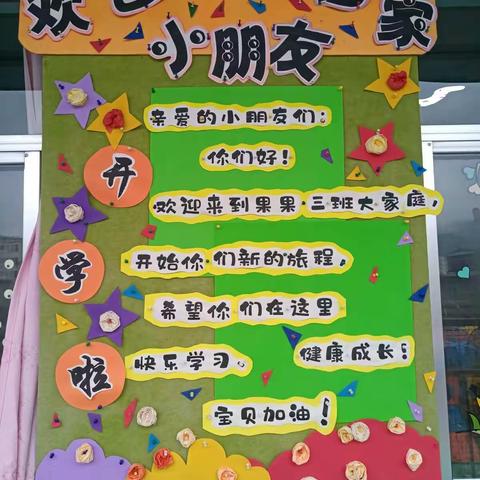 欢
家
小朋友
开学啦
亲爱的小朋友们：
你们好！
欢迎来到果果三班大家庭，
开始你们新的旅程，
希望你们在这里
快乐学习、健康成长！
宝贝加油！